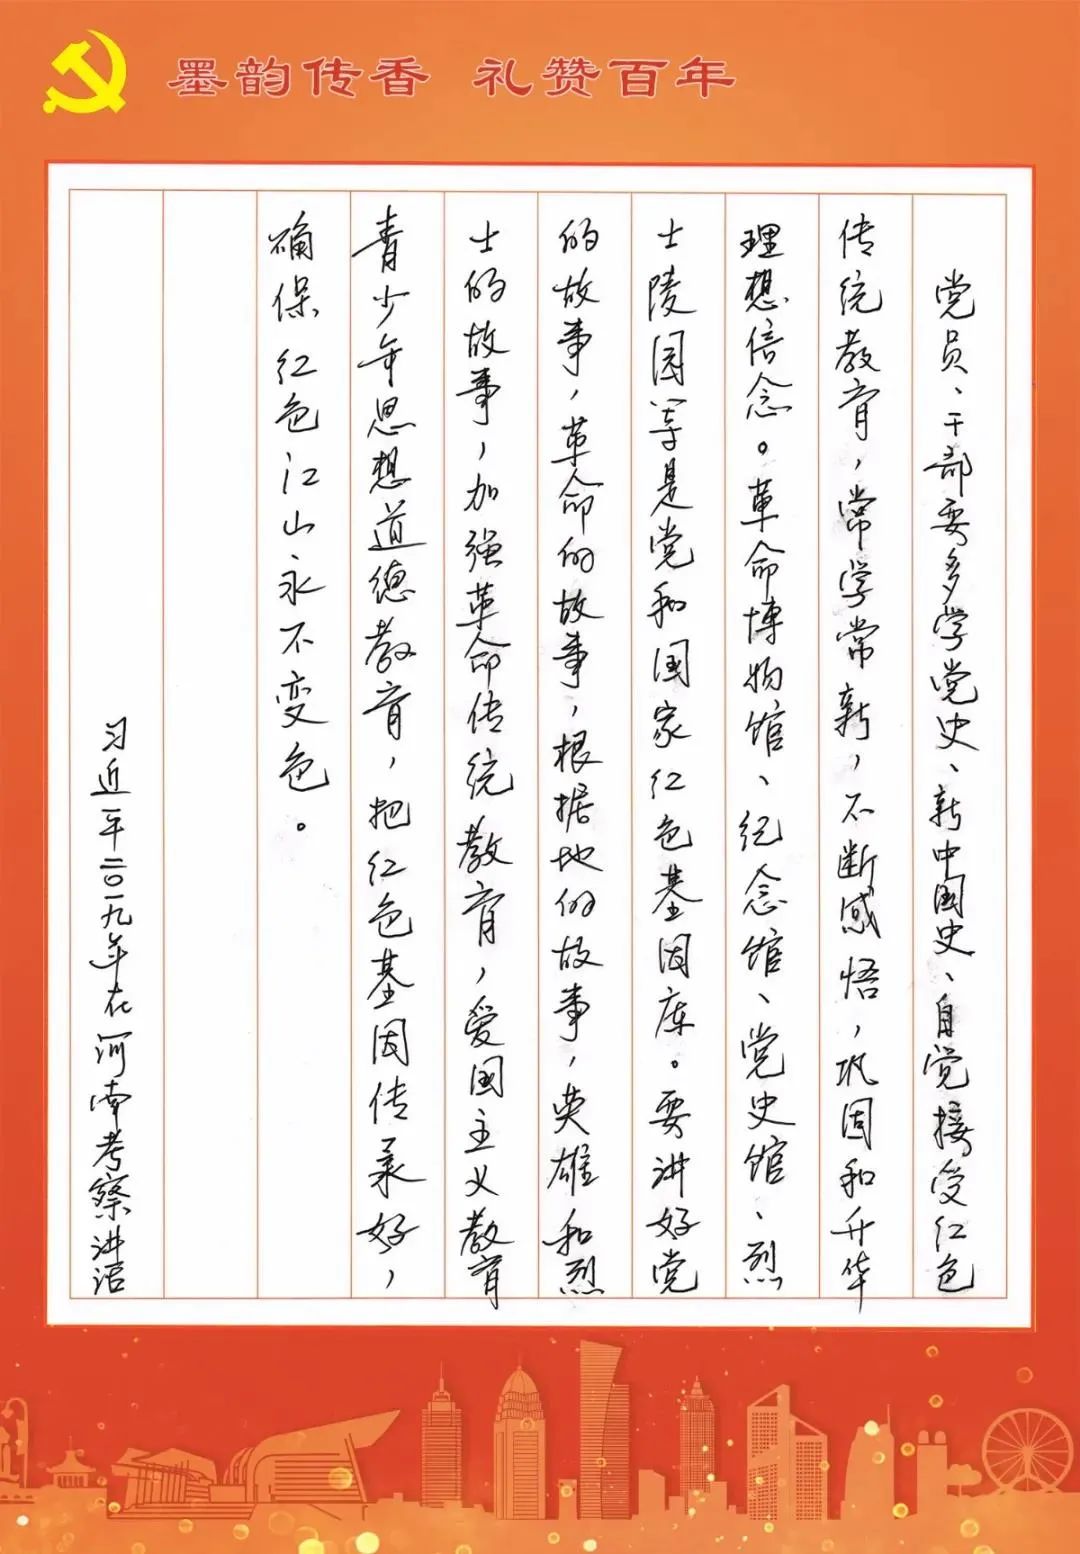 墨韵传香 礼赞百年
党员、干部要多学党史、新中国史、自觉接受红色
传统教育，常学常新，不断感悟，巩固和升华
理想信念。革命博物馆、纪念馆、党史馆、烈
士陵园等是党和国家红色基因库。要讲好党
的故事，革命的故事，根据地的故事，英雄和烈
士的故事，加强革命传统教育，爱国主义教育
青少年思想道德教育，把红色基因传承好，
确保红色江山永不变色。
习近平二〇一九年在河南考察讲话